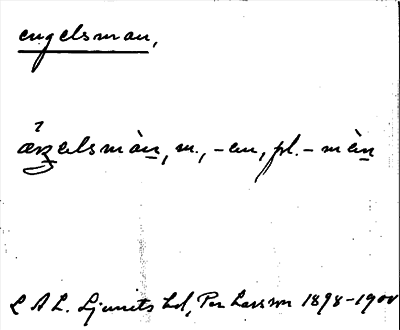 engelsman,
äŋelsmàn, m., -en, pl. -mèn
L A L. Ljunits hd, Per Larsson 1898-1900